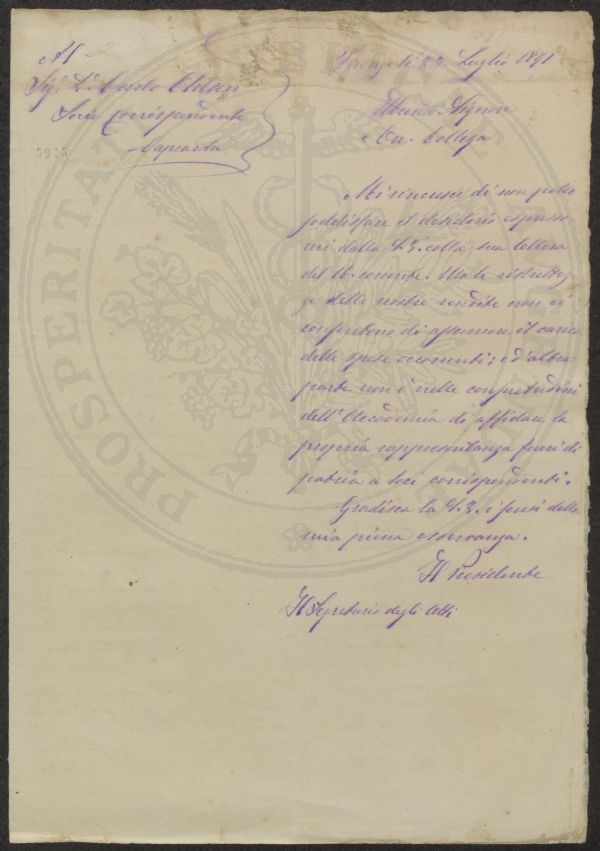 Al
Sig. Dr. Carlo
Socio Corrispondente
5925
li 22 Luglio 1891
Signor
On. Collega
Mi rincresce di non poter
soddisfare il desiderio espresso
mi dalla S.V. colla sua lettera
del 16. corrente. Ma la ristrettez
za delle nostre rendite non ci
di assumere il carico
delle spese occorrenti; e d'altra
parte non è nelle consuetudini
dell'Accademia di affidare la
propria rappresentanza fuori di
patria a soci corrispondenti.
Gradisca la S.V. i sensi della
mia piena osservanza.
Il Presidente
Il Segretario degli Atti
PROSPERITATI